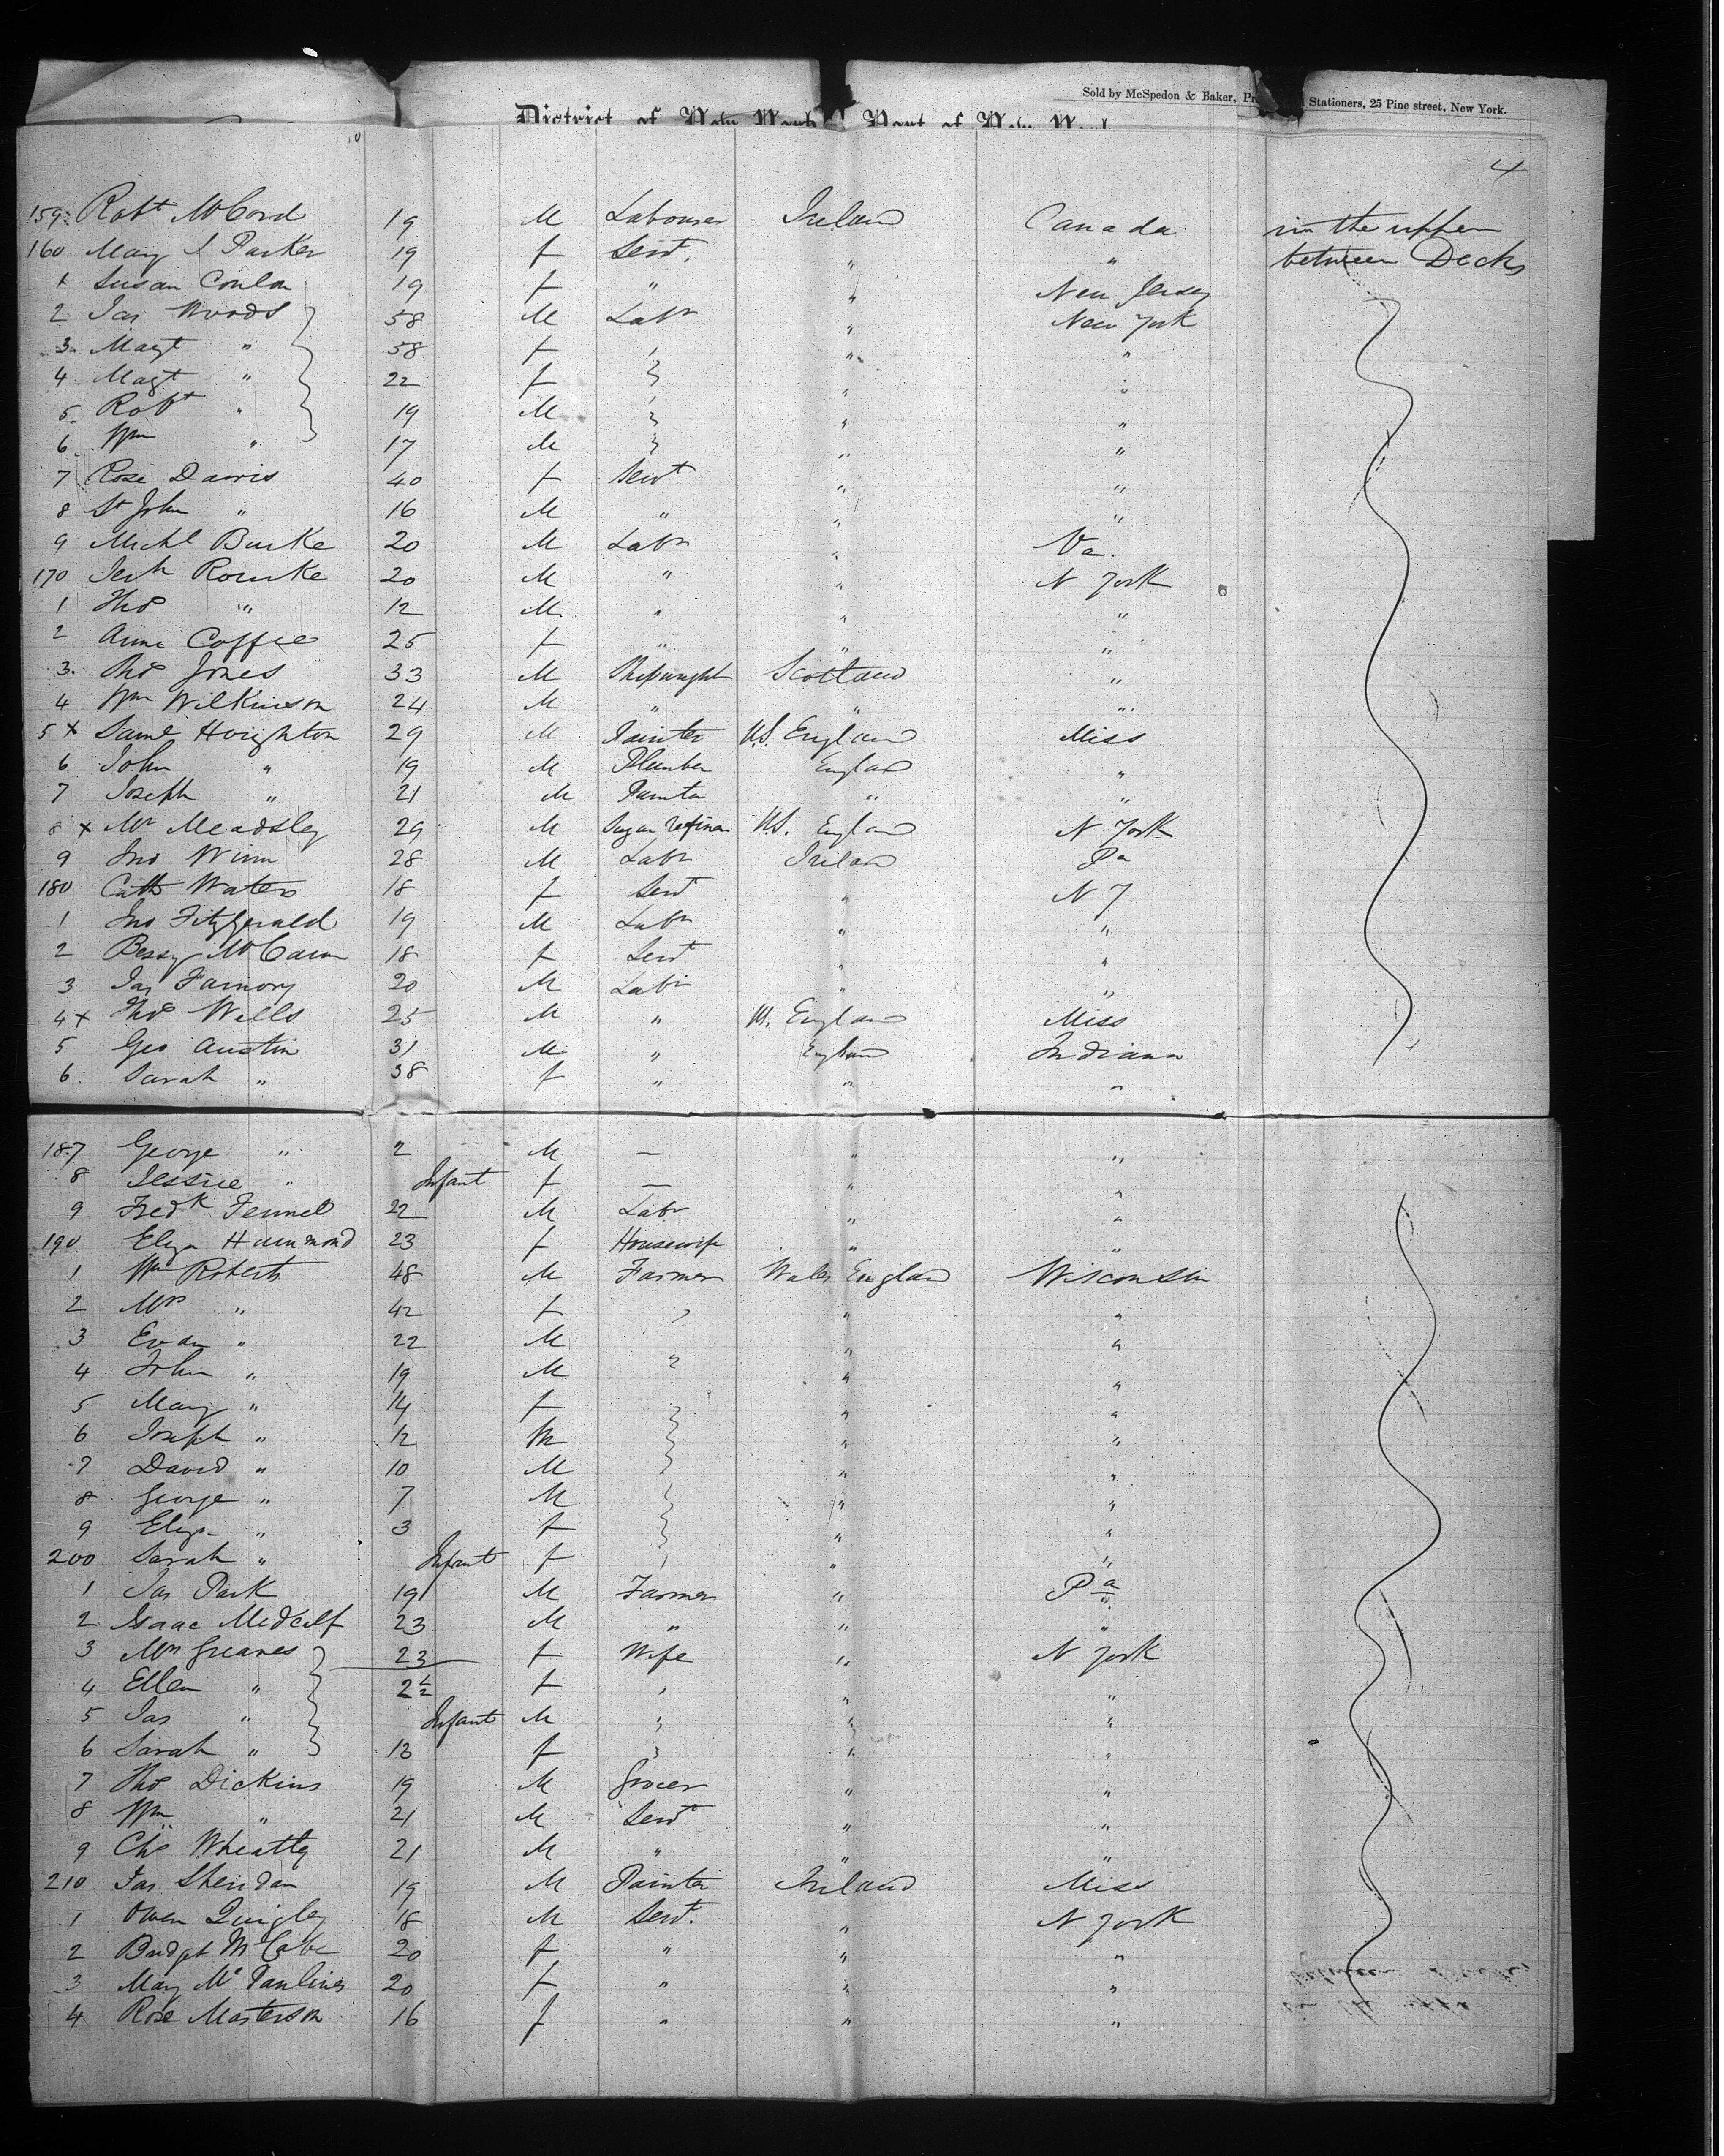 Sold by McSpedon & Baker, Stationers, 25 Pine street, New York.
District of New York Port of New York
4
159 Robt McCord 19 M Labourer Ireland Canada in the upper
160 Mary J Parker 19 f Servt. " " between Decks
1 Susan Conlon 19 f " " New Jersey
2 Jas Woods 58 M Labr " New York
3 Magt " 58 f " "
4 Magt " 22 f " "
5 Robt " 19 M " "
6 Wm " 17 M " "
7 Rose Davis 40 f Servt " "
8 St John " 16 M " " "
9 Michl Burke 20 M Labr " Va.
170 Jerh Rourke 20 M " " N York
1 Thos " 12 M " " "
2 Anne Coffee 25 f " " "
3 Thos Jones 33 M Shipwright Scotland "
4 Wm Wilkinson 24 M " " "
5 x Saml Hoighton 29 M Painter US. England Miss
6 John " 19 M Plumber England "
7 Joseph " 21 M Painter " "
8 x Mr Meadsley 29 M Sugar refiner US. England N York
9 Jno Winn 28 M Labr Ireland Pa
180 Cath Waters 18 f Servt " N Y
1 Jno Fitzgerald 19 M Labr " "
2 Bessy McCann 18 f Servt " "
3 Jas 20 M Labr " "
4 x Thos Wells 25 M " US. England Miss
5 Geo Austin 31 M " England Indiana
6 Sarah " 38 f " " "
187 George " 2 M — " "
8 Jessie " Infant f — " "
9 Fredk Fennel 22 M Labr " "
190 Eliza Hammond 23 f Housewife " "
1 Wm Roberts 48 M Farmer Wales England Wisconsin
2 Mrs " 42 f " "
3 Evan " 22 M " "
4 John " 19 M " " "
5 Mary " 14 f " "
6 Joseph " 12 M " "
7 David " 10 M " "
8 George " 7 M " "
9 Eliza " 3 f " "
200 Sarah " Infant f " "
1 Jas Park 19 M Farmer " Pa
2 Isaac Medcalf 23 M " " "
3 Mrs Greaves 23 f Wife " N York
4 Ellen " 2 1/2 f " "
5 Jas " Infant M " "
6 Sarah " 13 f " "
7 Thos Dickins 19 M Grocer " "
8 Wm " 21 M Servt " "
9 Chs Wheatly 21 M " " "
210 Jas Sheridan 19 M Painter Ireland Miss
1 Owen Quigley 18 M Servt. " N York
2 Bridgt McCabe 20 f " " "
3 Mary 20 f " " "
4 Rose Masterson 16 f " " "